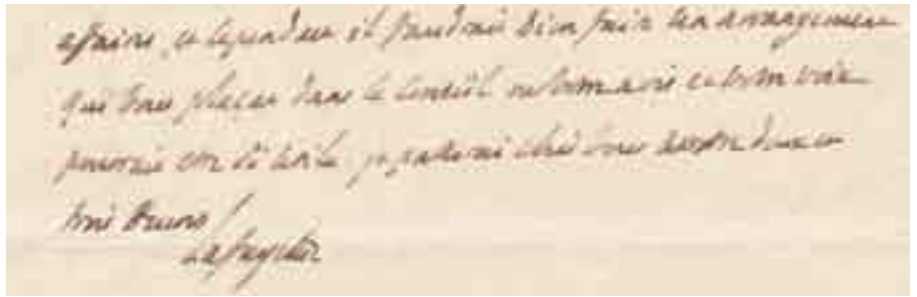 affaires, et cependant il faudrait bien faire un arrangement
qui vous plaçat dans le Conseil ou votre avis et votre voix
pouvoir être utile je passerai chés vous avant deux ou
trois heures
Lafayette